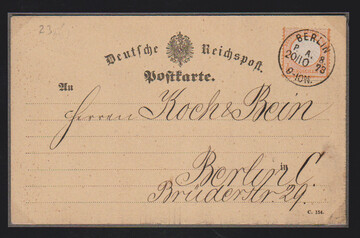 23
Deutsche Reichspost.
Postkarte.
BERLIN
P. A. 8
20/10 73
9-10N.
An
Herren Koch & Bein
in Berlin C.
Brüderstr. 29.
C. 124.